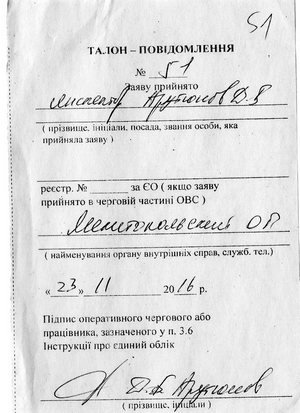 51
ТАЛОН – ПОВІДОМЛЕННЯ
№ 51
Заяву прийнято
инспектор Арутюнов Д.В
( прізвище. ініціали, посада, звання особи, яка
прийняла заяву )
реєстр. № ________ за ЄО ( якщо заяву
прийнято в черговій частині ОВС )
Мелитопольский ОП
( найменування органу внутрішніх справ, служб. тел.)
« 23 » 11 2016 р.
Підпис оперативного чергового або
працівника, зазначеного у п. 3.6
Інструкції про єдиний облік
Арутюнов
( прізвище, ініціали )